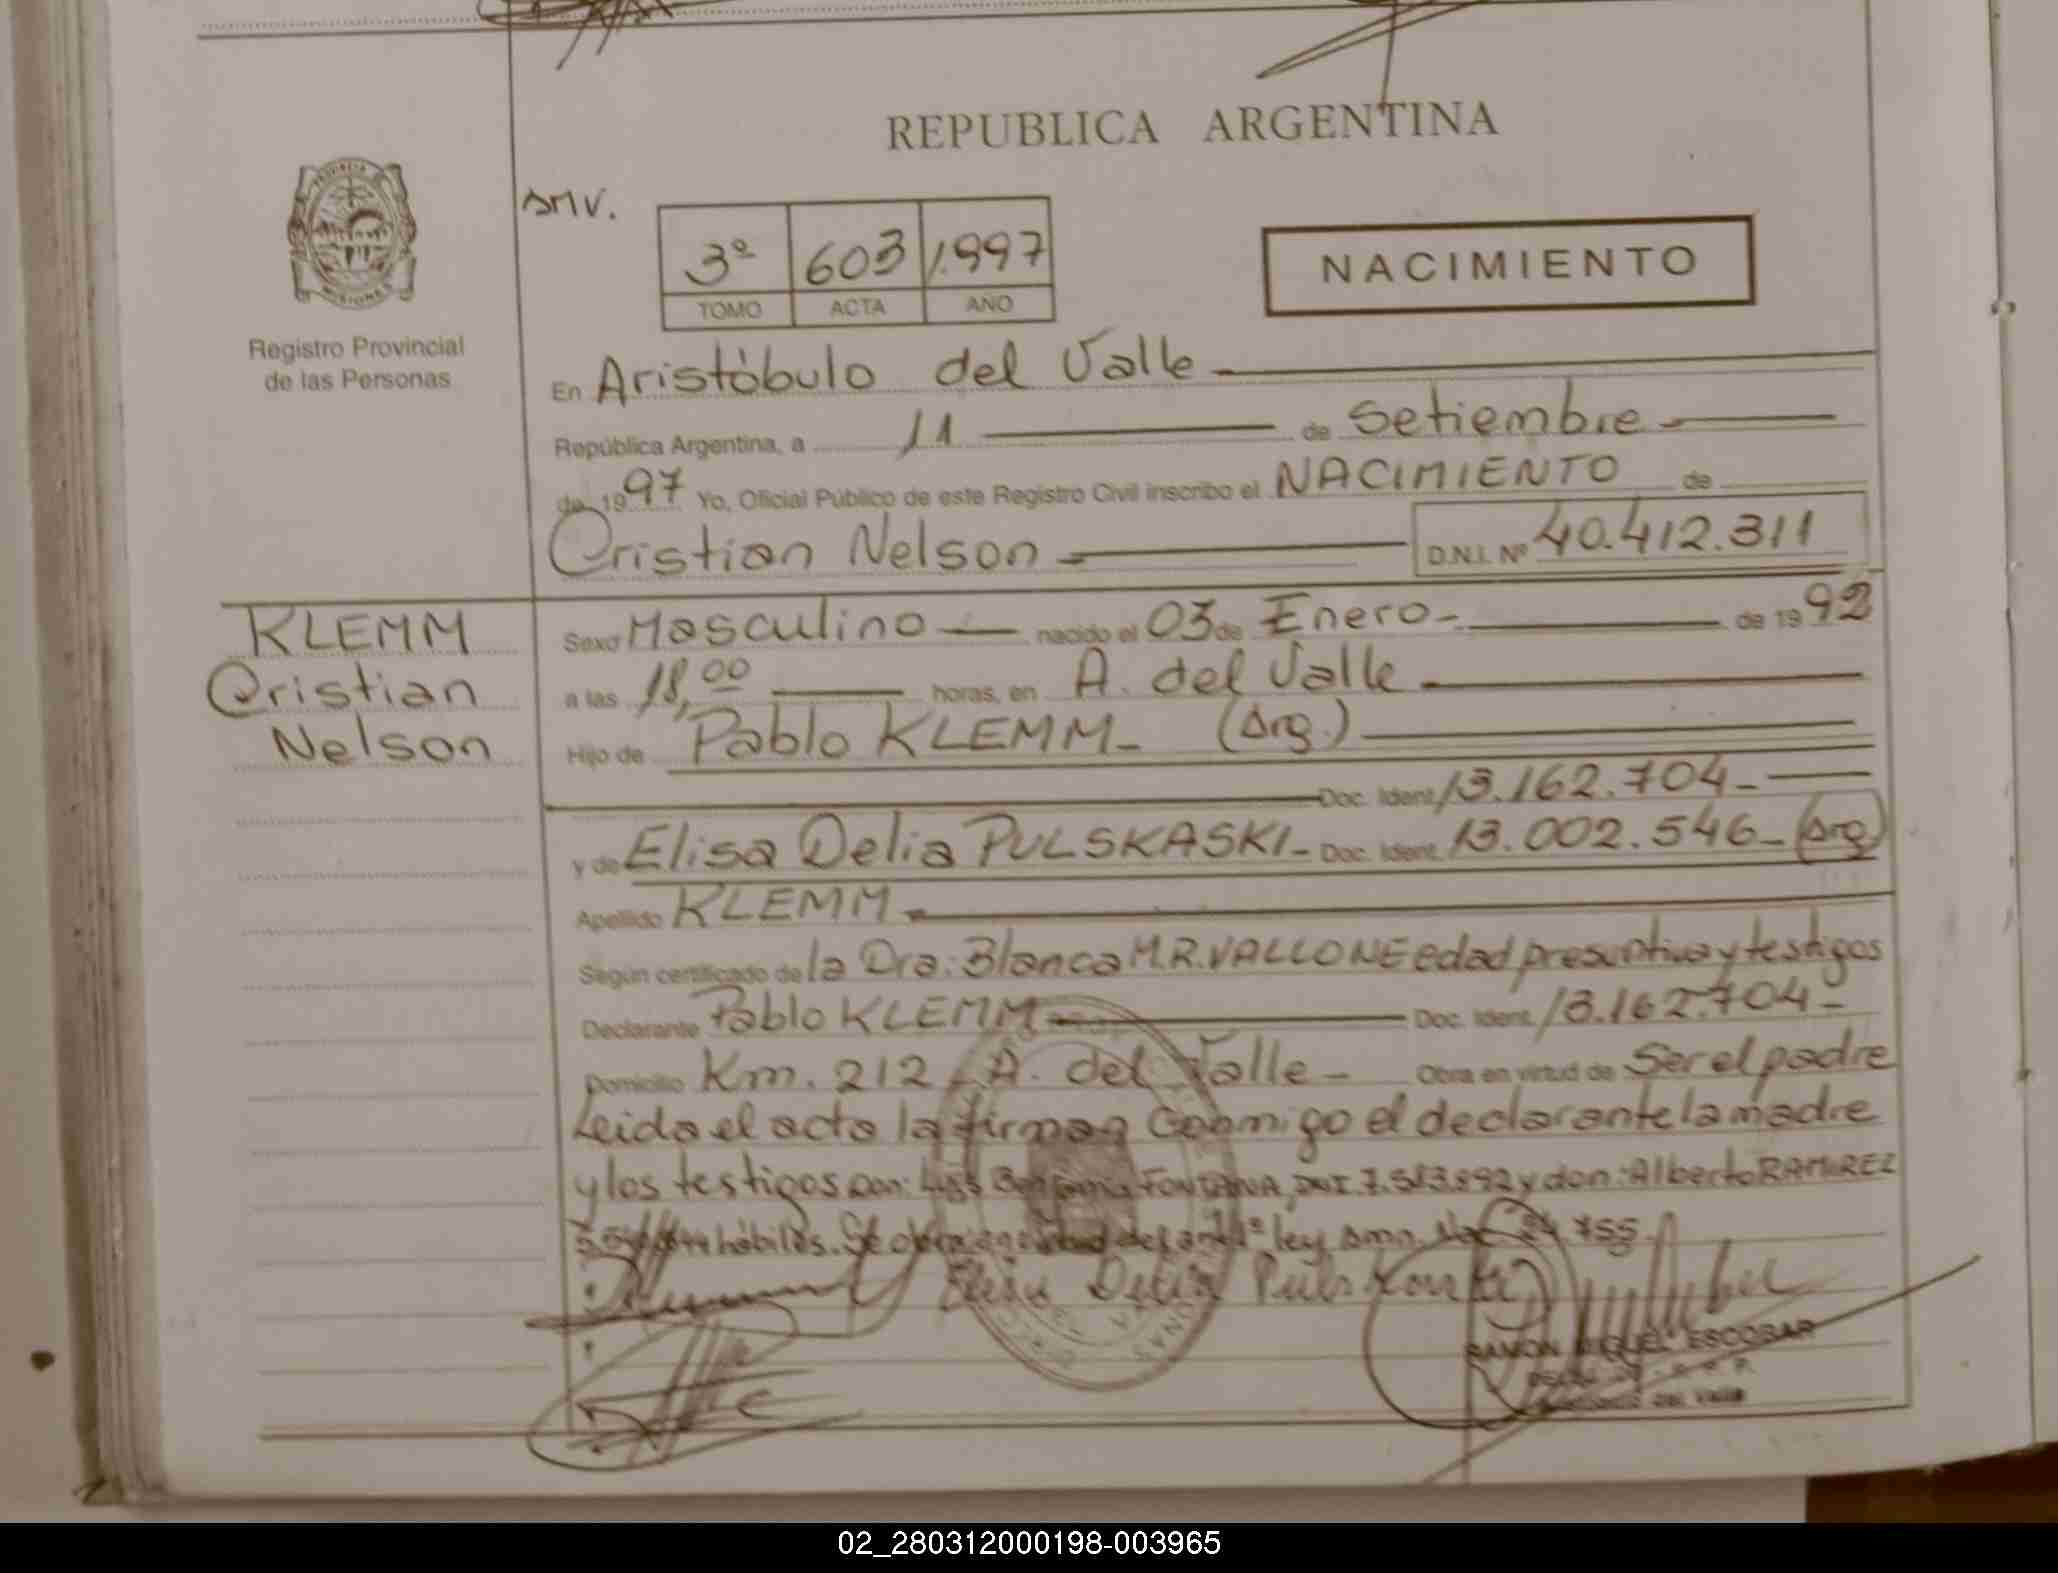 REPUBLICA ARGENTINA
PROVINCIA
MISIONES
Registro Provincial
de las Personas
SMV.
3º 603 1.997
TOMO ACTA AÑO
NACIMIENTO
En Aristóbulo del Valle
República Argentina, a 11 de Setiembre
de 1997 Yo, Oficial Público de este Registro Civil inscribo el NACIMIENTO de
Cristian Nelson D.N.I. Nº 40.412.311
KLEMM
Cristian
Nelson
Sexo Masculino nacido el 03 de Enero de 1992
a las 18,00 horas, en A. del Valle
Hijo de Pablo KLEMM (Arg.)
Doc. Ident. 13.162.704
y de Elisa Delia PULSKASKI Doc. Ident. 13.002.546 (Arg)
Apellido KLEMM
Según certificado de la Dra: Blanca M.R. VALLONE edad presuntiva y testigos
Declarante Pablo KLEMM Doc. Ident. 13.162.704
Domicilio Km. 212 A. del Valle Obra en virtud de Ser el padre
Leida el acta la firman Conmigo el declarante la madre
y los testigos Don: FONTANA, DNI. y don: Alberto RAMIREZ
hábiles. Se ley 24.755.
Elisa Delia
RAMON MIGUEL ESCOBAR
del Valle
02_280312000198-003965